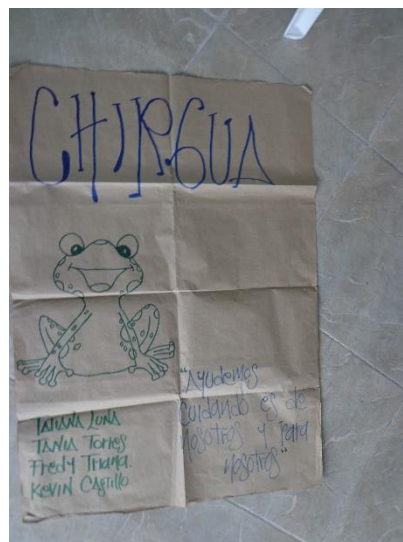 CHIRGUA
Tatiana Luna
Tania Torres
Fredy Triana.
Kevin Castillo
"Ayudemos
cuidando es de
nosotros y para
nosotros"